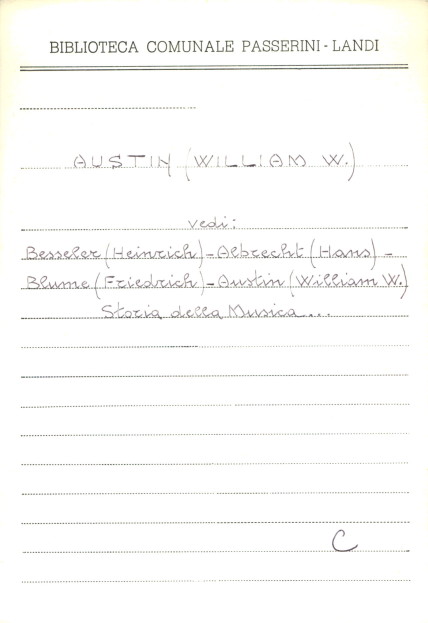 BIBLIOTECA COMUNALE PASSERINI - LANDI
AUSTIN (WILLIAM W.)
vedi:
Besseler (Heinrich) - Albrecht (Hans) -
Blume (Friedrich) - Austin (William W.)
Storia della Musica...
C